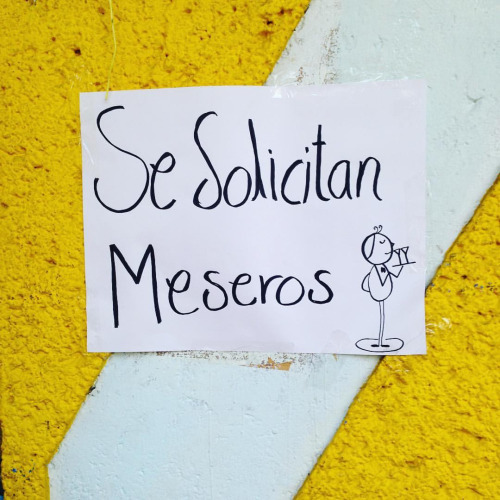 Se Solicitan
Meseros